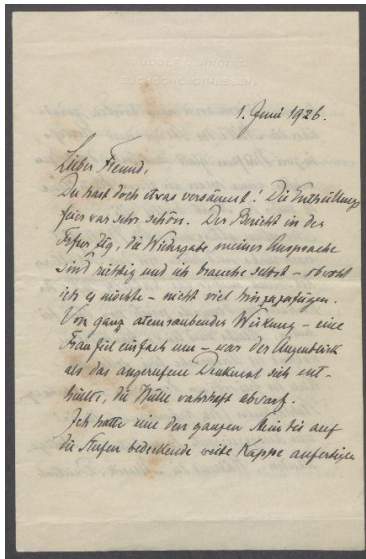 1. Juni 1926.
Lieber Freund,
Du hast doch etwas versäumt! Die Enthüllungs
feier war sehr schön. Der Bericht in der
Ztg, die Wiedergabe meiner Ansprache
sind richtig und ich brauche selbst – obwohl
ich es möchte – nicht viel hinzuzufügen.
Von ganz atemraubender Wirkung – eine
Frau fiel einfach um – war der Augenblick
als das angerufene Denkmal sich ent-
hüllte, die Hülle wahrhaft abwarf.
Ich hatte eine den ganzen Stein bis auf
die Stufen bedeckende weite Kappe anfertigen